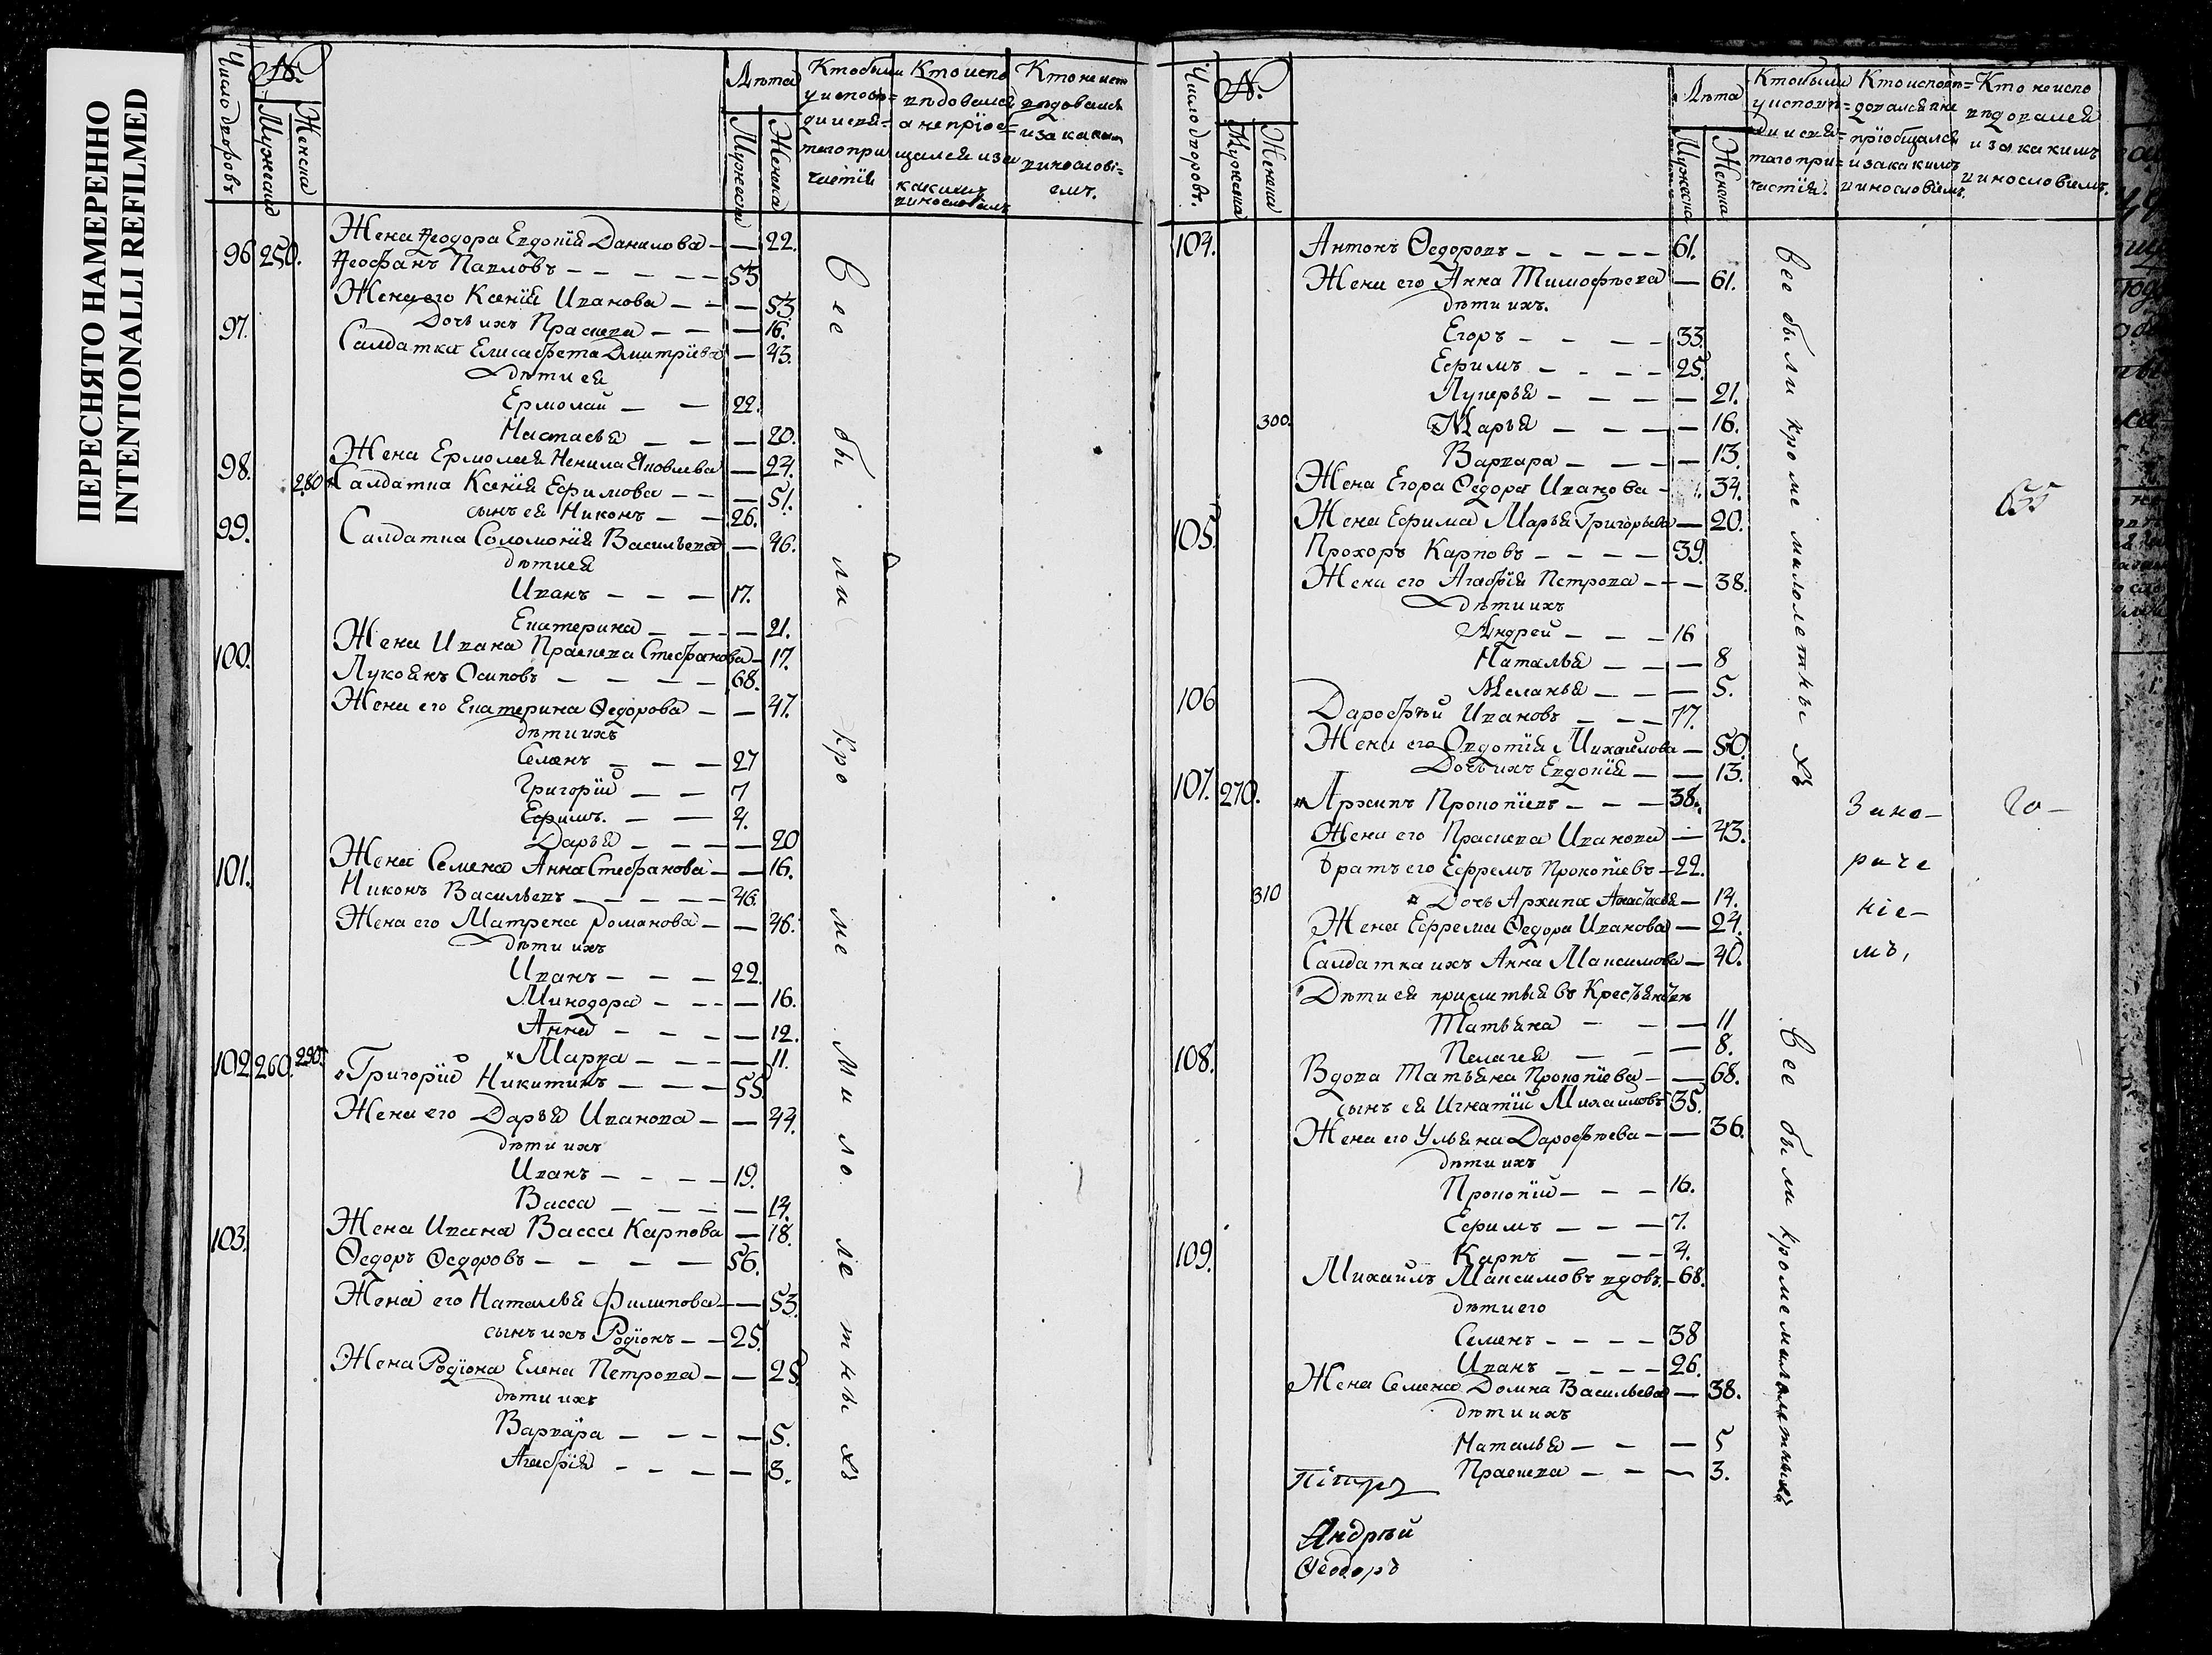 ПЕРЕСНЯТО НАМЕРЕННО
INTENTIONALLI REFILMED
Число дворовъ
№.
Мужеска
Женска
Лѣта
Мужеска
Женска
Кто были
у испов=
ди и свя=
таго при
частія
Кто испо
вѣдовался
а не пріоб=
щался и за
какимъ
винословіемъ
Кто не исп
вѣдовался
и за каким
винослові=
емъ.
Жена Ѳеодора Евдокія Данилова — — 22.
96 250. Ѳеофанъ Павловъ — 53
Жена его Ксенія Иванова — — 53
Дочь ихъ Праскева — — 16.
97. Салдатка Елисавѳета Дмитріева — 43.
дѣти ея
Ермолай — 22.
Настасья — — 20.
Жена Ермолая Ненила Яковлева — 24.
98. 280 Салдатка Ксенія Ефимова — — 51.
сынъ ея Никонъ — 26.
99. Салдатка Соломонія Васильева — 46.
дѣти ея
Иванъ — 17.
Екатерина — — 21.
Жена Ивана Праскева Стефанова — 17.
100. Лукоянъ Осиповъ — 68.
Жена его Екатерина Ѳедорова — — 47.
дѣти ихъ
Семенъ — 27
Григорій — 7
Ефимъ. — 4.
Дарья — — 20
Жена Семена Анна Стефанова — — 16.
101. Никонъ Васильевъ — 46.
Жена его Матрена Романова — — 46.
дѣти ихъ
Иванъ — 22.
Минодора — — 16.
Анна — — 12.
290. Марѳа — — 11.
102 260. Григорій Никитинъ — 55
Жена его Дарья Иванова — — 44.
дѣти ихъ
Иванъ — 19.
Васса — — 14.
Жена Ивана Васса Карпова — 18.
103. Ѳедоръ Ѳедоровъ — 56.
Жена его Наталья Филипова — — 53.
сынъ ихъ Родіонъ — 25.
Жена Родіона Елена Петрова — — 25.
дѣти ихъ
Варвара — — 5.
Агафія — — 3.
Все были кроме малолетныхъ
Число дворовъ.
№.
Мужеска
Женска
Лѣта
Мужеска
Женска
Кто были
у исповѣ=
ди и свя=
таго при=
частія.
Кто исповѣ=
довался а не
пріобщался
и за какимъ
винословіемъ.
Кто не испо
вѣдовался
и за какимъ
винословіемъ.
104. Антонъ Ѳедоровъ — 61.
Жена его Анна Тимофѣева — 61.
дѣти ихъ.
Егоръ — 33.
Ефимъ — 25.
Лукерья — — 21.
300. Марья — — 16.
Варвара — — 13.
Жена Егора Ѳедора Иванова — 34.
Жена Ефима Марья Григорьева — 20.
105. Прохоръ Карповъ — 39.
Жена его Агафія Петрова — — 38.
дѣти ихъ
Андрей — 16
Наталья — — 8
Меланья — — 5.
106 Дарофѣй Ивановъ — 77.
Жена его Овдотія Михайлова — 50.
Дочь ихъ Евдокія — — 13.
107. 270. Архипъ Прокопіевъ — 38.
Жена его Праскева Иванова — 43.
братъ его Ефремъ Прокопіевъ — 22.
310 Дочь Архипа Анастасья — 14.
Жена Ефрема Ѳедора Иванова — 24.
Салдатка ихъ Анна Максимова — 40.
Дѣти ея прижитыя въ Крестьянствѣ
Татьяна — — 11
Пелагея — — 8.
108. Вдова Татьяна Прокопіева — — 68.
сынъ ея Игнатій Михаиловъ 35.
Жена его Ульяна Дарофѣева — — 36.
дѣти ихъ
Прокопій — 16.
Ефимъ — 7.
Карпъ — 4.
109. Михаилъ Максимовъ вдовъ. — 68.
дѣти его
Семенъ — 38
Иванъ — 26.
Жена Семена Домна Васильева — 38.
дѣти ихъ
Наталья — — 5
Праскева — — 3.
Андрѣй
Ѳеодоръ
Все были кроме малолетныхъ
Все были кроме малолетныхъ
За но—
раче
ніе—
мъ,